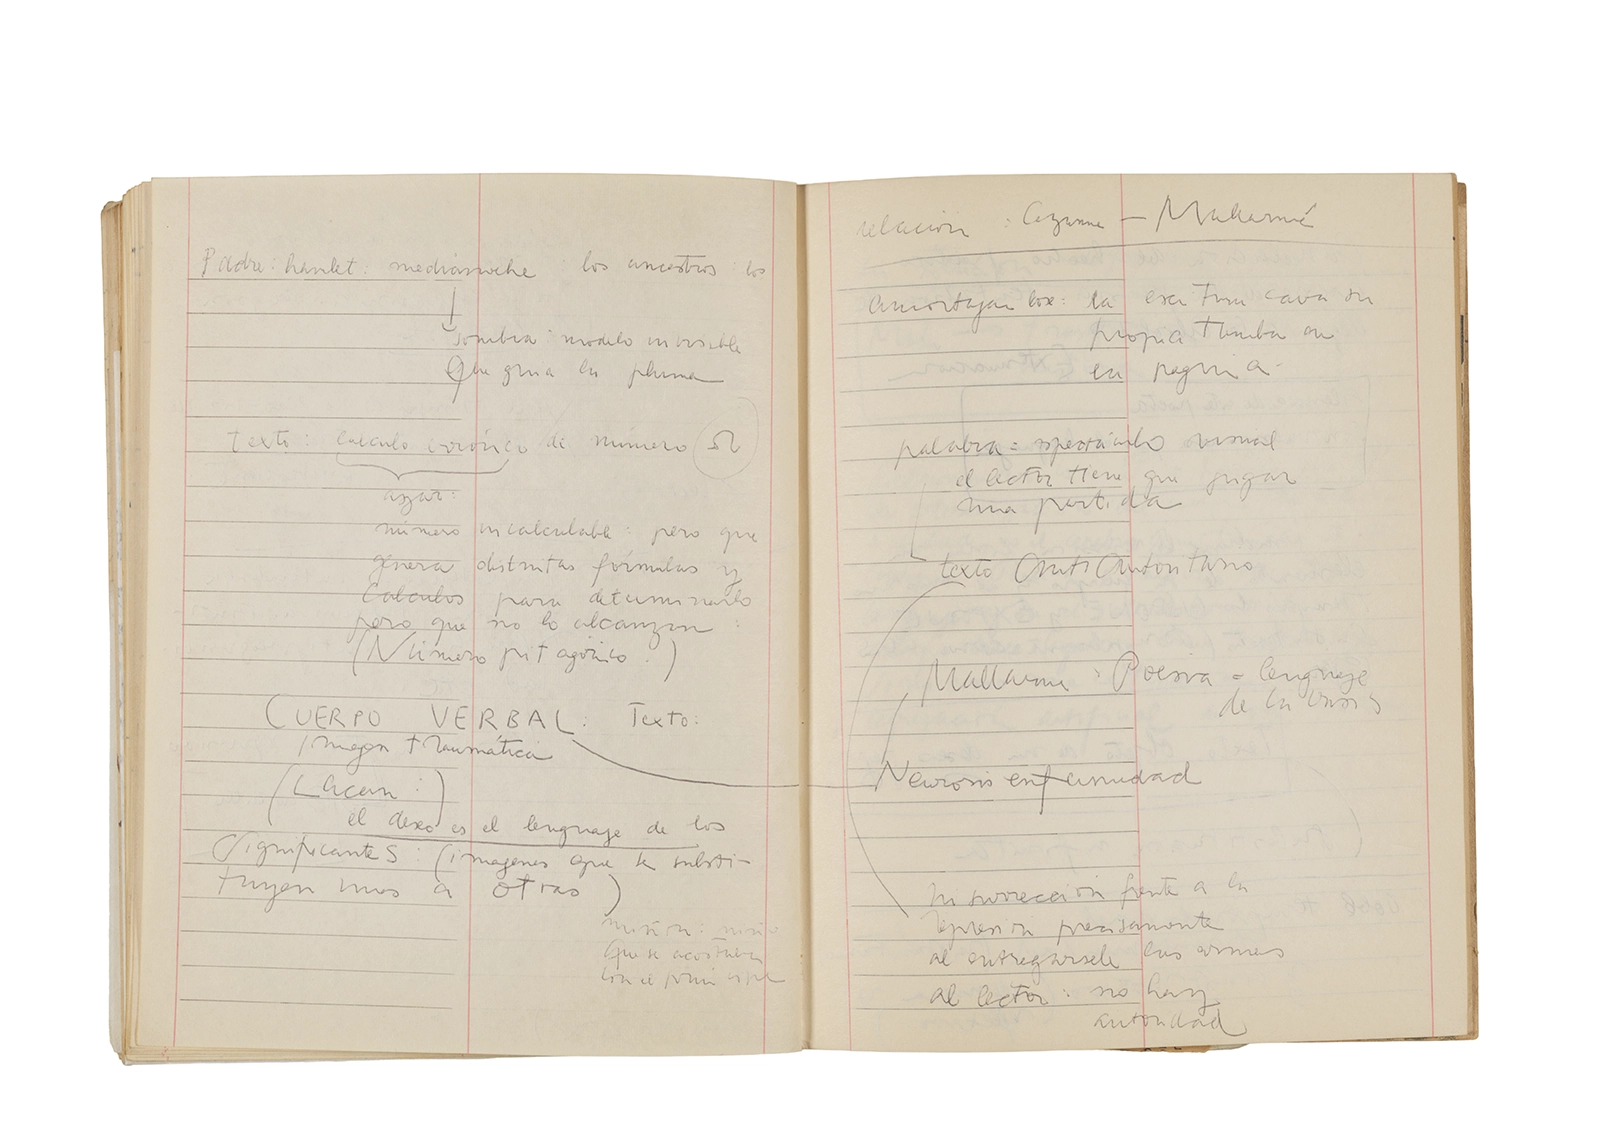 Padre: hamlet: medianoche los ancestros los
sombra: modelo invisible
Que guia la pluma
Texto: Calculo irónico de número Ω
azar:
número incalculable: pero que
genera distintas fórmulas y
Calculos para determinarlo
pero que no lo alcanzan:
(Número pitagórico.)
CUERPO VERBAL: Texto:
imagen traumática
(Lacan:)
el deseo es el lenguaje de los
Significantes: (imagenes que se substi-
tuyen unos a otras)
niño
Que se acostaba
con el
relación: Cezanne — Mallarmé
la escritura cava su
propia tumba
en pagina.
palabra = espectáculo visual
el lector tiene que jugar
una partida
texto AntiAutoritario
Mallarme: Poesia = lenguaje
de la crisis
Neurosis enfermedad
Insurrección frente a la
represion precisamente
al entregarsele las armas
al lector: no hay
autoridad